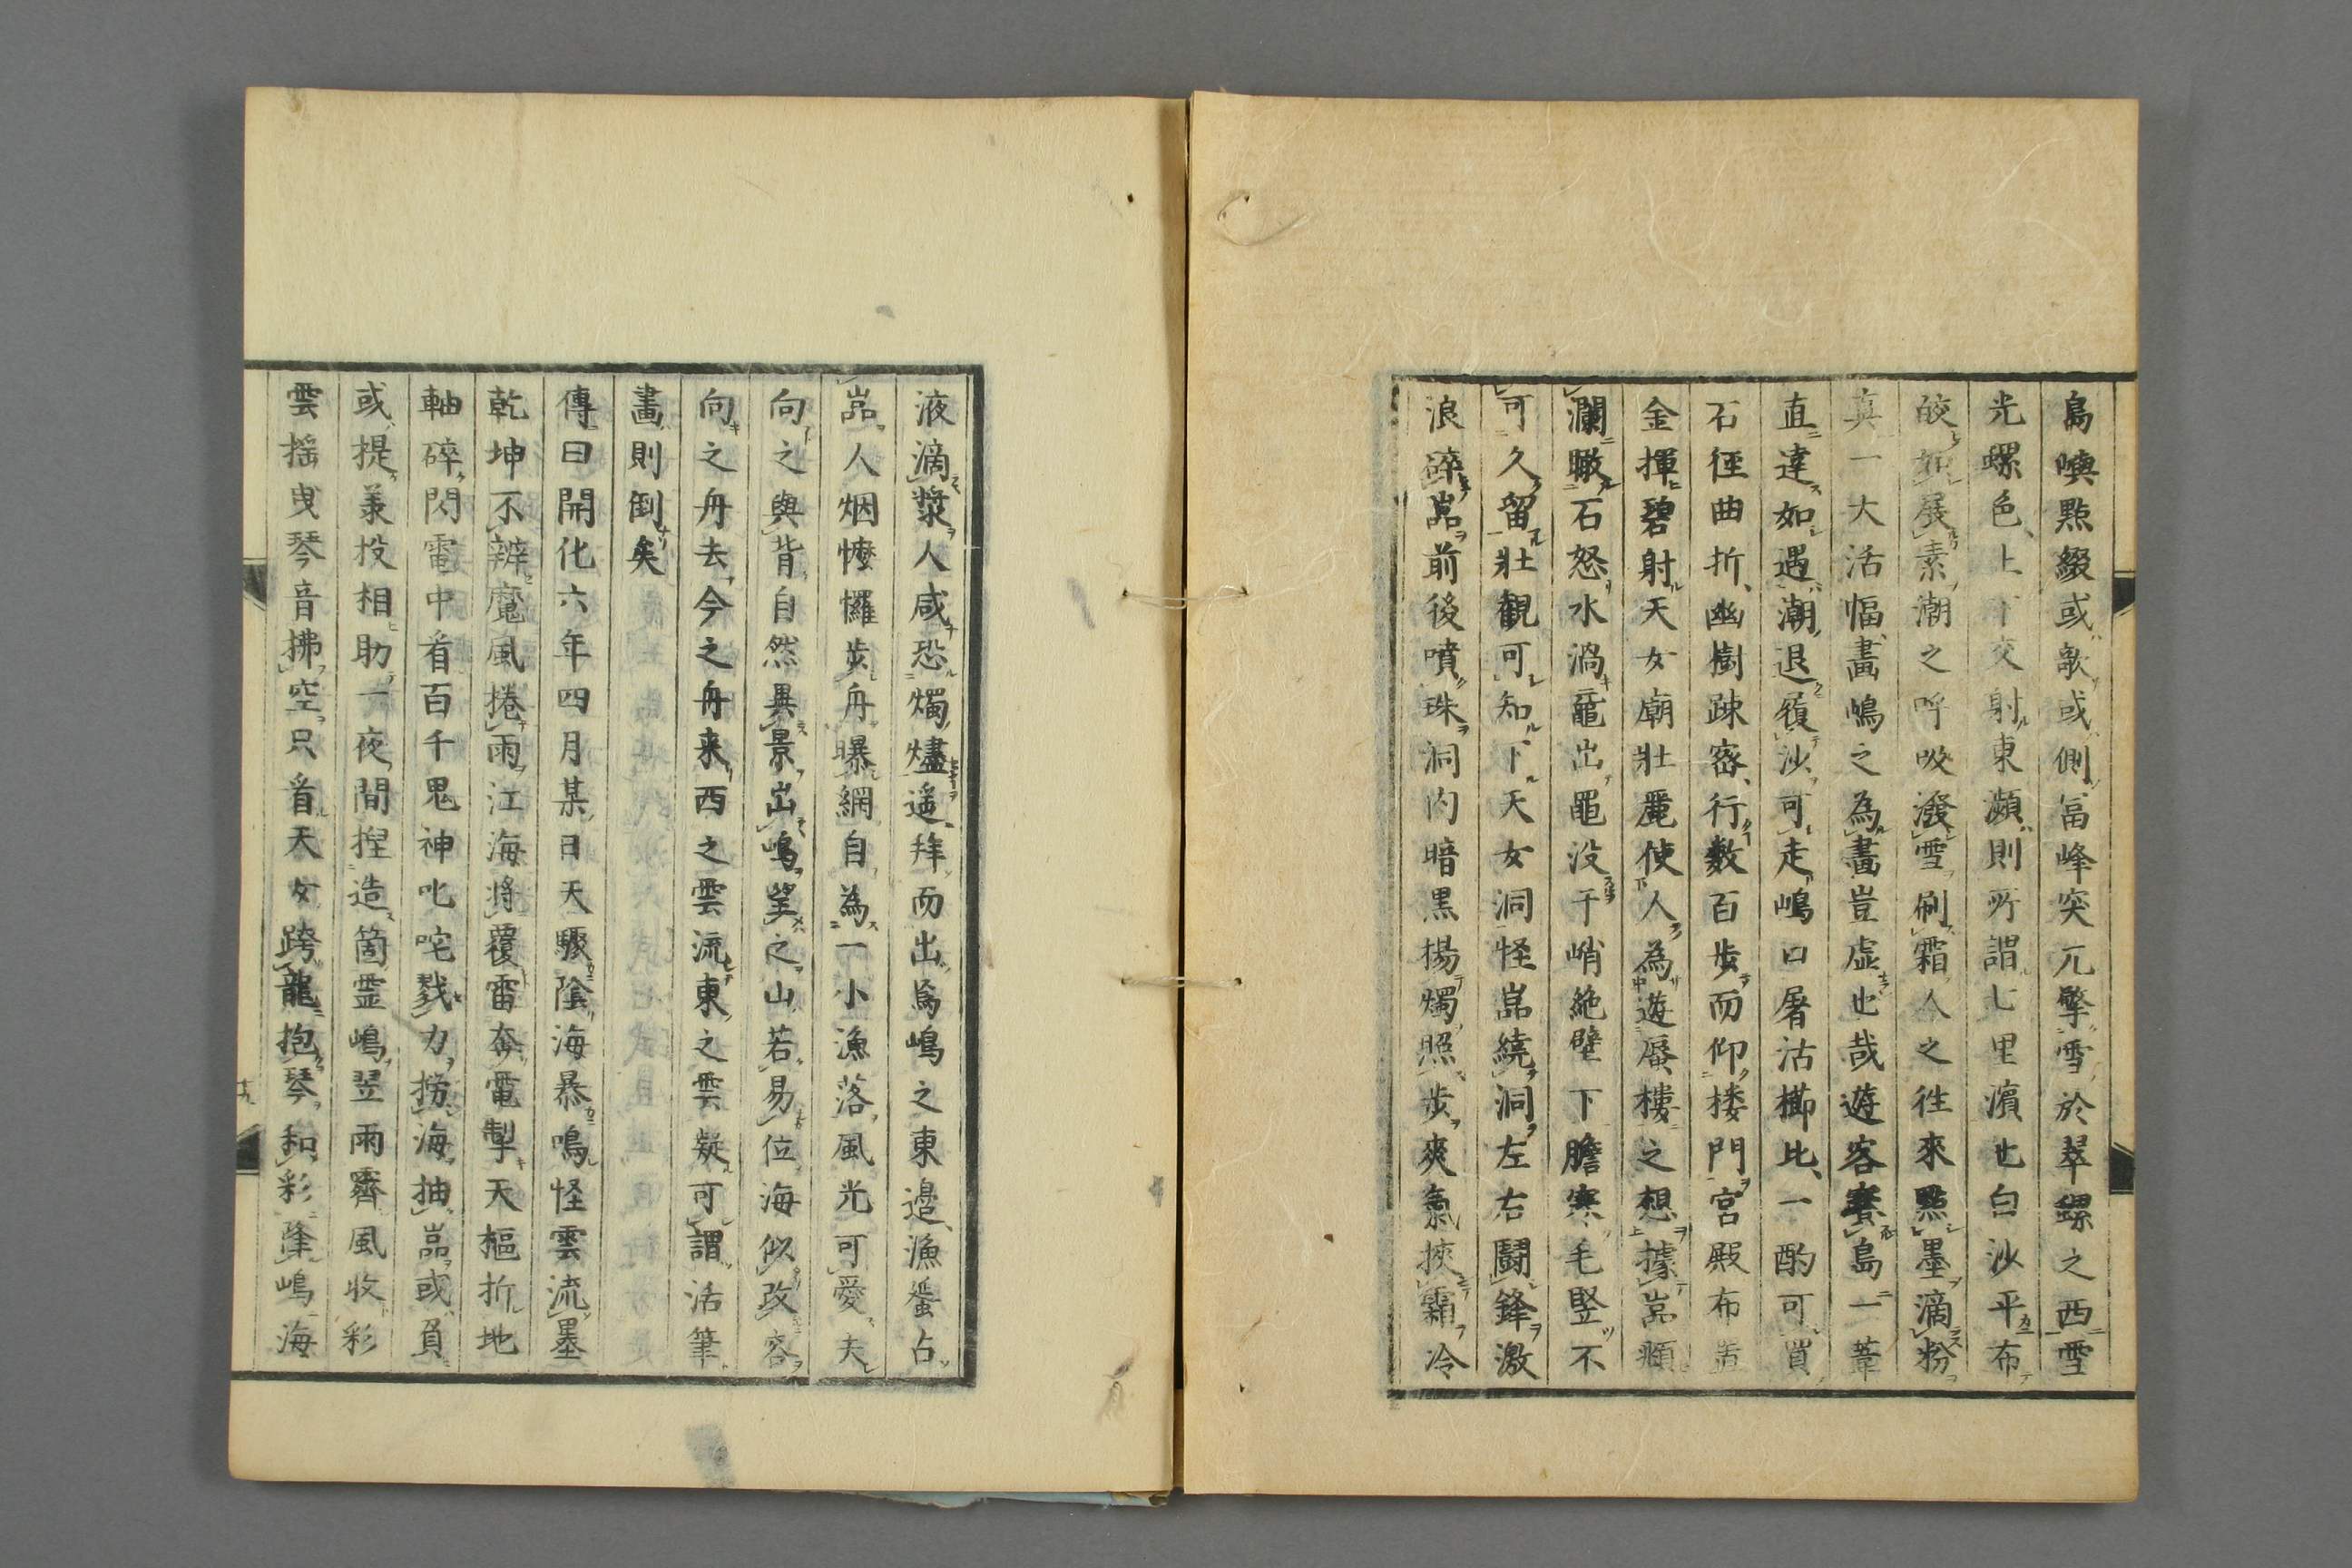 島嶼點綴或欹或側冨峰突兀擎雪於翠螺之西雪
光螺色上下交射東瀕則所謂七里濱也白沙平布
皎如展素潮之呼吸潑雪刷霜人之徃來點墨滴粉
真一大活幅畵嶋之為畵豈虛也哉遊客賽島一葦
直達如遇潮退履沙可走嶋口屠沽櫛比一酌可買
石径曲折幽樹疎密行數百步而仰楼門宮殿布置
金揮碧射天女廟壯麗使人為遊蜃樓之想據嵓頫
瀾瞰石怒水渦鼉出黽没千峭絶壁下膽寒毛竪不
可久留壯観可知下天女洞怪嵓繞洞左右闘鋒激
浪碎嵓前後噴珠洞内暗黒揚燭照步爽氣挾霜冷
液滴漿人咸恐燭燼遥拜而出焉嶋之東邉漁蜑占
嵓人烟㦬㦬步舟曝網自為一小漁落風光可愛夫
向之與背自然異景出嶋望之山若易位海似改容
向之舟去今之舟来西之雲流東之雲凝可謂活筆
畵則倒矣
傳曰開化六年四月某日天驟陰海暴鳴怪雲流墨
乾坤不辨魔風捲雨江海将覆雷奔電掣天樞折地
軸碎閃電中看百千鬼神叱咤戮力撈海抽嵓或負
或提羕投相助一夜間揑造箇霊嶋翌雨霽風收彩
雲揺曳琴音拂空只看天女跨龍抱琴和彩降嶋海